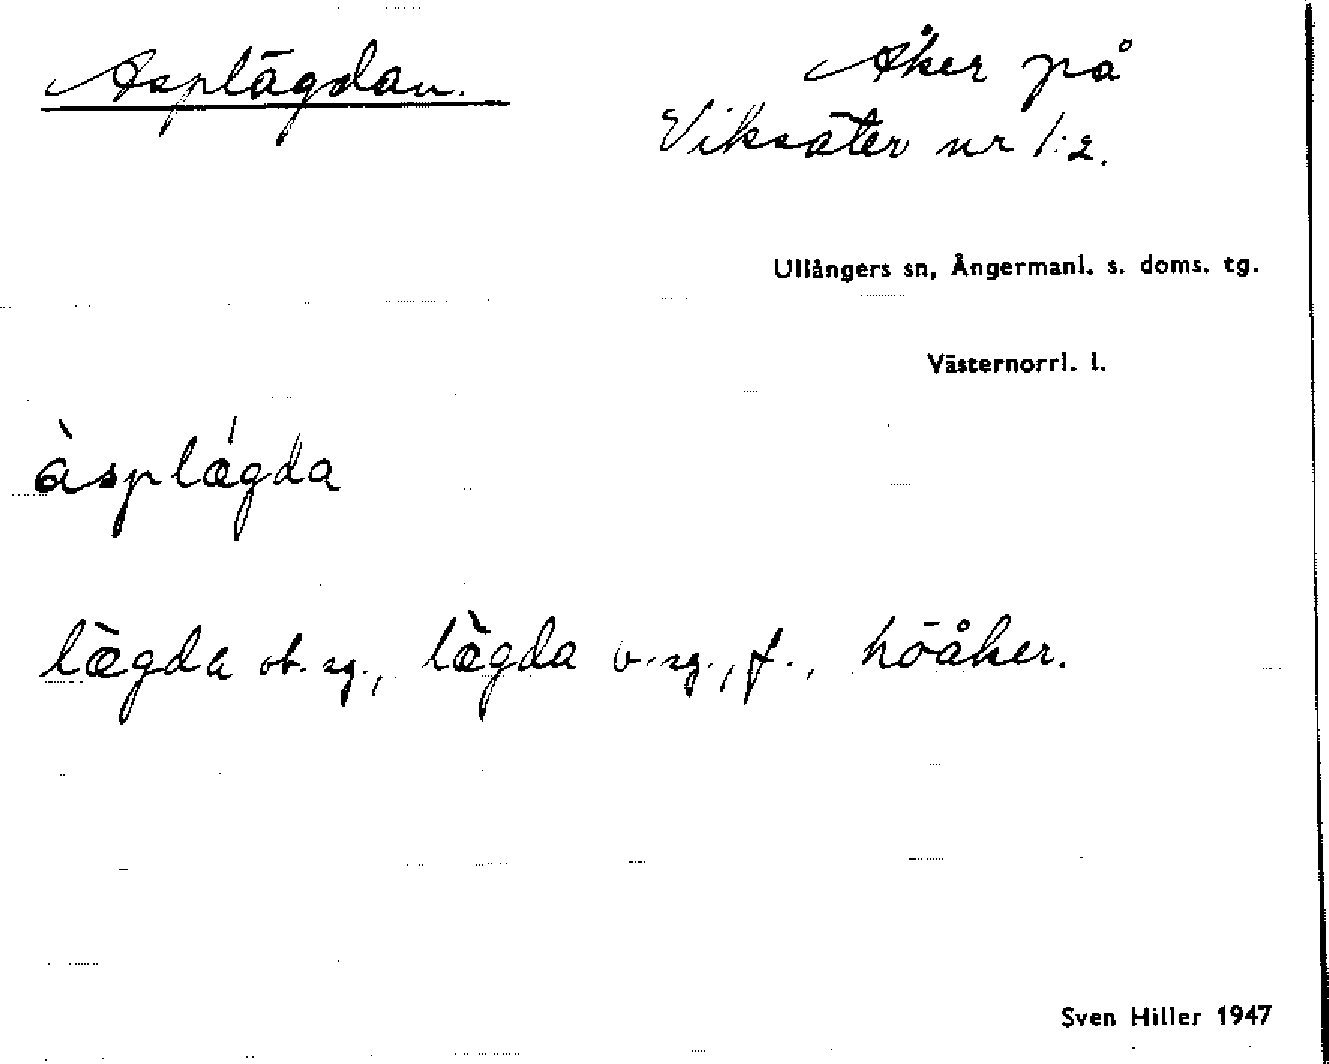 Asplägdan.
Åker på
Viksäter nr 1:2.
Ullångers sn, Ångermanl. s. doms. tg.
Västernorrl. l.
àsplǽgda
læ̀gda ob. sg., læ̀gda b. sg., f., höåker.
Sven Hiller 1947